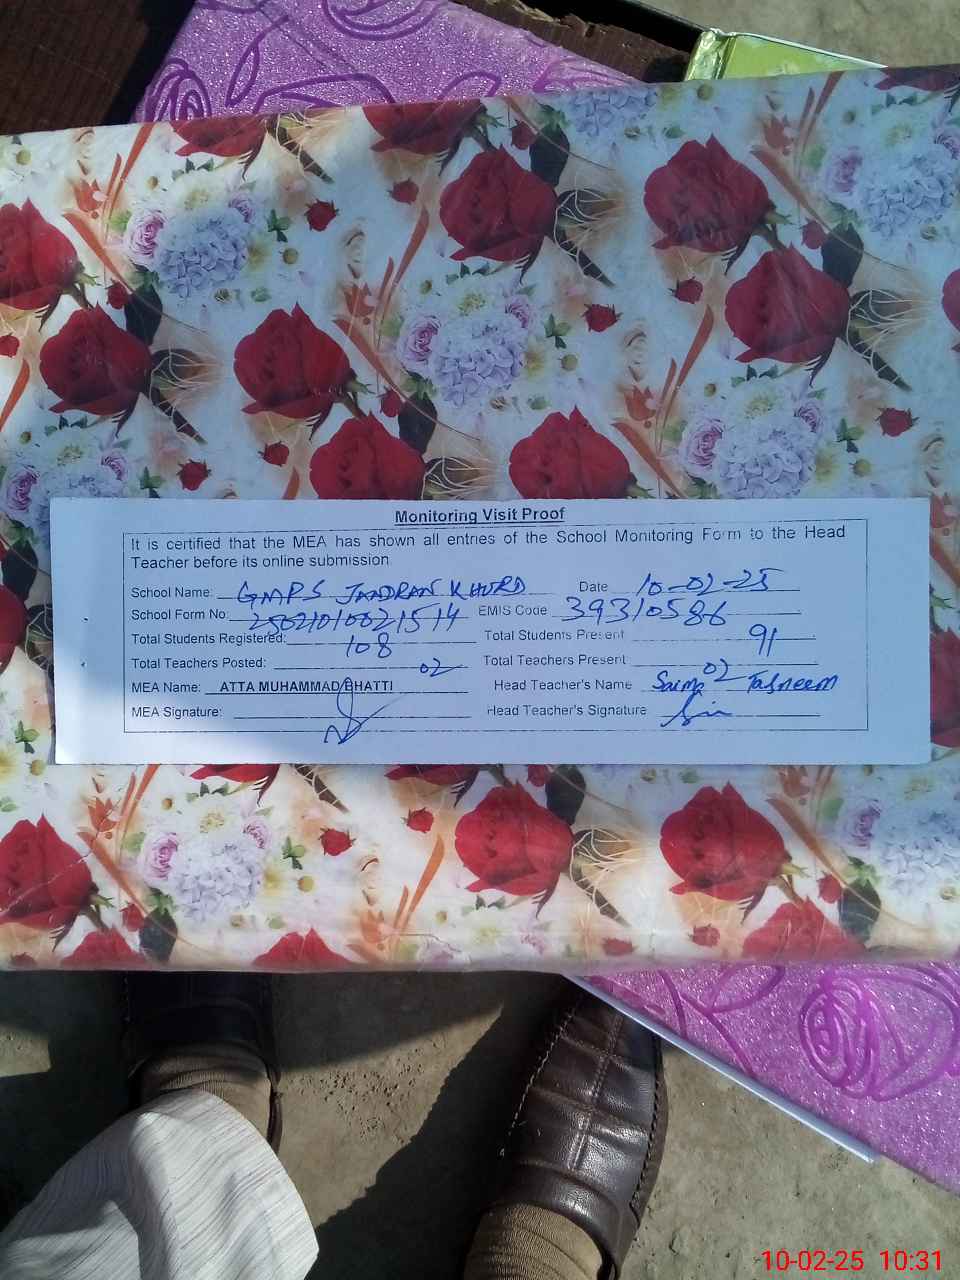 Monitoring Visit Proof
It is certified that the MEA has shown all entries of the School Monitoring Form to the Head
Teacher before its online submission
School Name: GMPS JANDRAN KHURD Date 10-02-25
School Form No: 25021010021514 EMIS Code 39310586
Total Students Registered: 108 Total Students Present 91
Total Teachers Posted: 02 Total Teachers Present 02
MEA Name: ATTA MUHAMMAD BHATTI Head Teacher's Name Saima Tasneem
MEA Signature: Head Teacher's Signature
10-02-25 10:31